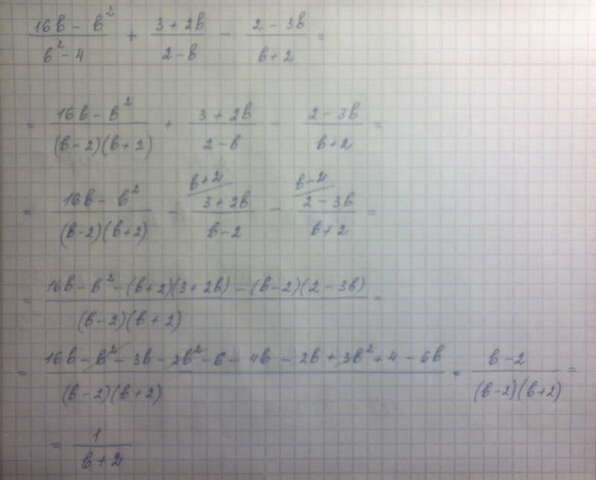 (16b - b²)/(b² - 4) + (3 + 2b)/(2 - b) - (2 - 3b)/(b + 2) =
= (16b - b²)/((b - 2)(b + 2)) + (3 + 2b)/(2 - b) - (2 - 3b)/(b + 2) =
= (16b - b²)/((b - 2)(b + 2)) - b+2/ (3 + 2b)/(b - 2) - b-2/ (2 - 3b)/(b + 2) =
= (16b - b² - (b + 2)(3 + 2b) - (b - 2)(2 - 3b))/((b - 2)(b + 2)) =
= (16b - b² - 3b - 2b² - 6 - 4b - 2b + 3b² + 4 - 6b)/((b - 2)(b + 2)) = (b - 2)/((b - 2)(b + 2)) =
= 1/(b + 2)